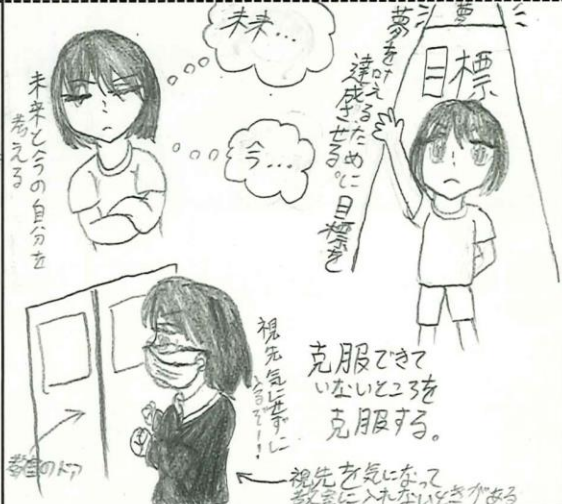 未来...
今...
未来と今の自分を
考える
夢
目標
夢を叶えるために目標を
達成させる。
視先気にせずに
入るぞ!!
克服できて
いないところを
克服する。
教室のドア
視先を気になって
教室に入れないときがある